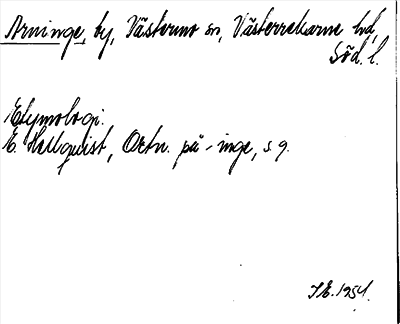 Arninge, by, Västermo sn, Västerrekarne hd,
Söd. l.
Etymologi.
E. Hellquist, Ortn. på -inge, s 9.
I E. 1954.